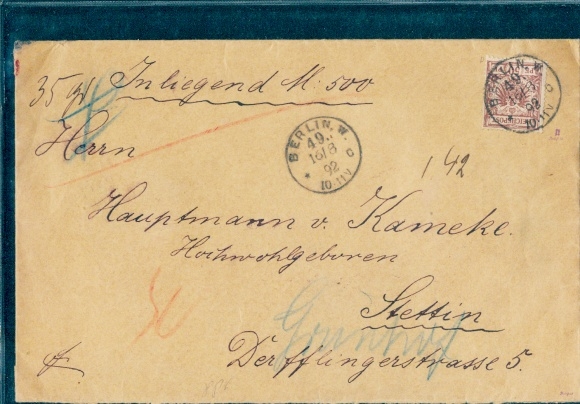 35 gr Inliegend M: 500
Herrn
BERLIN, W.
49.
16/8
92
10-11V
BERLIN. W.
49.
92
10-11V
REICHSPOST
142
Hauptmann v. Kameke.
Hochwohlgeboren
Stettin
Grünhof
Derfflingerstrasse 5.